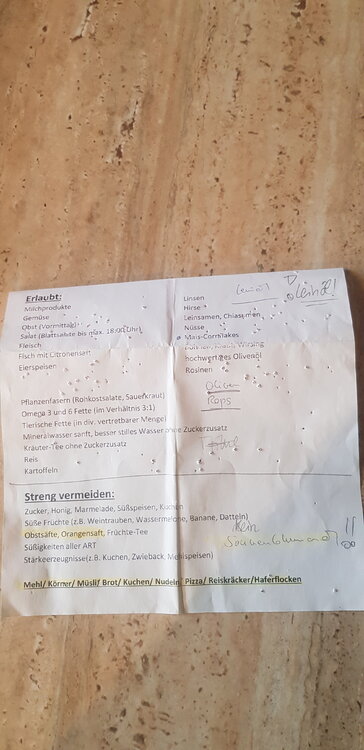 Erlaubt:
Milchprodukte
Gemüse
Obst (Vormittag)
Salat (Blattsalate bis max. 18:00 Uhr)
Fleisch
Fisch mit Citronensaft
Eierspeisen
Pflanzenfasern (Rohkostsalate, Sauerkraut)
Omega 3 und 6 Fette (im Verhältnis 3:1)
Tierische Fette (in div. vertretbarer Menge)
Mineralwasser sanft, besser stilles Wasser ohne Zuckerzusatz
Kräuter-Tee ohne Zuckerzusatz
Reis
Kartoffeln
Linsen
Hirse
Leinsamen, Chiasamen
Nüsse
Mais-Cornflakes
Wirsing
hochwertges Olivenöl
Rosinen
Leinöl!
Oliven
Raps
Streng vermeiden:
Zucker, Honig, Marmelade, Süßspeisen, Kuchen
Süße Früchte (z.B. Weintrauben, Wassermelone, Banane, Datteln)
Obstsäfte, Orangensaft, Früchte-Tee
Süßigkeiten aller ART
Stärkeerzeugnisse(z.B. Kuchen, Zwieback, Mehlspeisen)
Kein
Sonnenblumenöl !!
Mehl/ Körner/ Müsli/ Brot/ Kuchen/ Nudeln/ Pizza/ Reiskräcker/Haferflocken